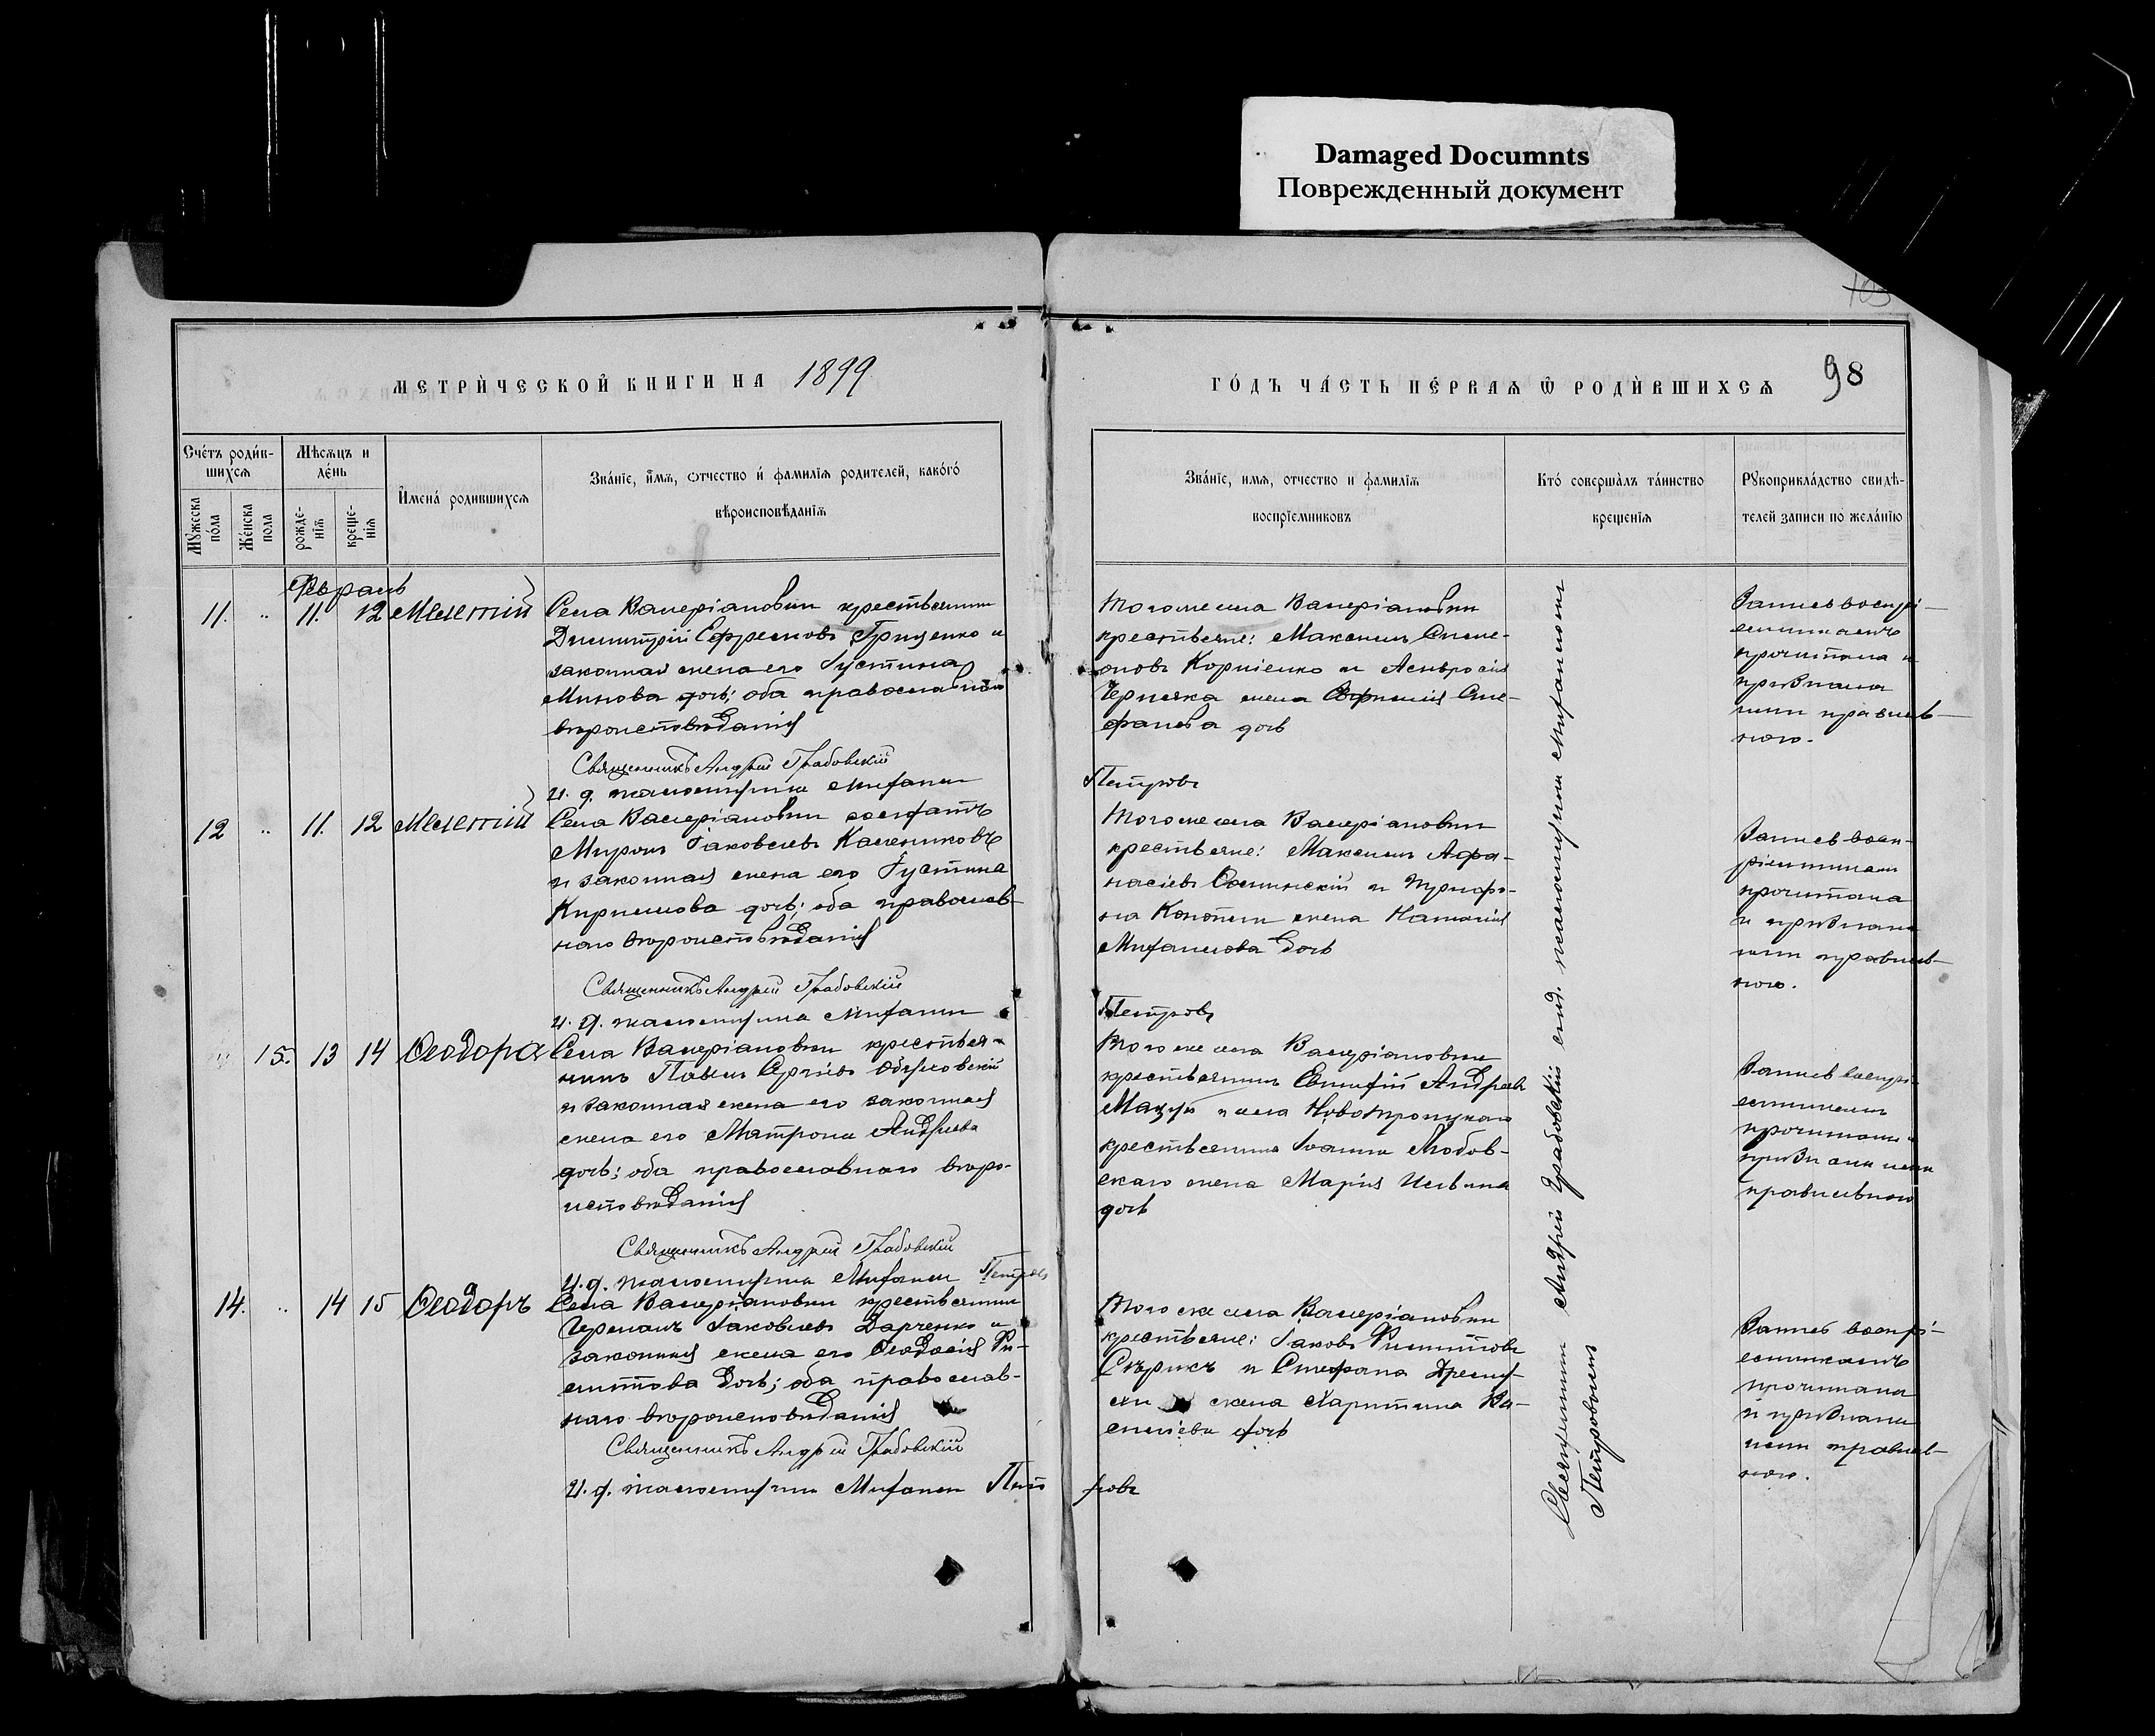 Damaged Documnts
Поврежденный документ
98
МЕТРИ́ЧЕСКОЙ КНИГИ НА 1899
ГО́ДЪ ЧА́СТЬ ПЕ́РВАѦ Ѿ РОДИ́ВШИХСѦ
Сче́тъ роди́в-
шихсѧ
Мѣсѧцъ и
де́нь
Мꙋжеска
по́ла
Же́нска
пола
рожде-
нїѧ
креще-
нїѧ
И҆мена́ родившихсѧ
Зва́нїе, и҆мѧ, ѻтчество и҆ фамилїѧ родителей, како́го́
вѣроисповѣ́данїѧ
Зва́нїе, имѧ, отчество и фамилїѧ
воспрїемниковъ
Кто́ соверша́лъ та́инство
крещенїѧ
Рꙋкоприкла́дство свидѣ-
телей записи по жела́нїю
Февраль
11. " 11. 12 Мелетій
Села Валеріановки крестьянинъ
Димитрій Ефремовъ Гриценко и
законная жена его Іустина
Минова дочь; оба православнаго
вѣроисповѣданія
Священникъ Андрей Грабовскій
И. д. псаломщика Митрофанъ
Петровъ
Тогоже села Валеріановки
крестьяне: Максимъ Симе-
оновъ Корніенко и
Черняка жена Сте-
фанова дочь
Запись воспрі-
емниками
прочитана и
признана
ими правиль-
ною.
12 " 11. 12 Мелетій
Села Валеріановки солдатъ
Миронъ Іаковлевъ Калениковъ
и законная жена его Іустина
Кириллова дочь; оба православ-
наго вѣроисповѣданія
Священникъ Андрей Грабовскій
И. д. псаломщика Митрофанъ
Петровъ
Тогоже села Валеріановки
крестьяне: Максимъ Афа-
насіевъ и
жена Наталія
дочь
Запись восп-
ріемниками
прочитана
и признана
ими правиль-
ною.
" 15. 13 14 Ѳеодора
Села Валеріановки крестья-
нинъ Павелъ Сергіевъ
и законная жена его законная
жена его Матрона Андреева
дочь; оба православнаго вѣро-
исповѣданія
Священникъ Андрей Грабовскій
И. д. псаломщика Митрофанъ Петровъ
Того же села Валеріановки
крестьянинъ Евтихій Андреевъ
и села Новотроицкаго
крестьянина Іоанна Любов-
скаго жена Марія
дочь
Запись воспрі-
емниками
прочитана и
признана ими
правильною
14. " 14 15 Ѳеодоръ
Села Валеріановки крестьянинъ
Германъ Іаковлевъ и
законная жена его Ѳеодосія Фи-
липпова дочь; оба православ-
наго вѣроисповѣданія
Священникъ Андрей Грабовскій
И. д. псаломщика Митрофанъ Пет
ровъ
Того же села Валеріановки
крестьяне: Іаковъ Филипповъ
и Стефана
жена Харитина Ва-
силіева дочь
Запись воспрі-
емниками
прочитана
и признана
ими правиль-
ною.
Священникъ Андрей Грабовскій съ и. д. псаломщикомъ Митрофаномъ
Петровымъ